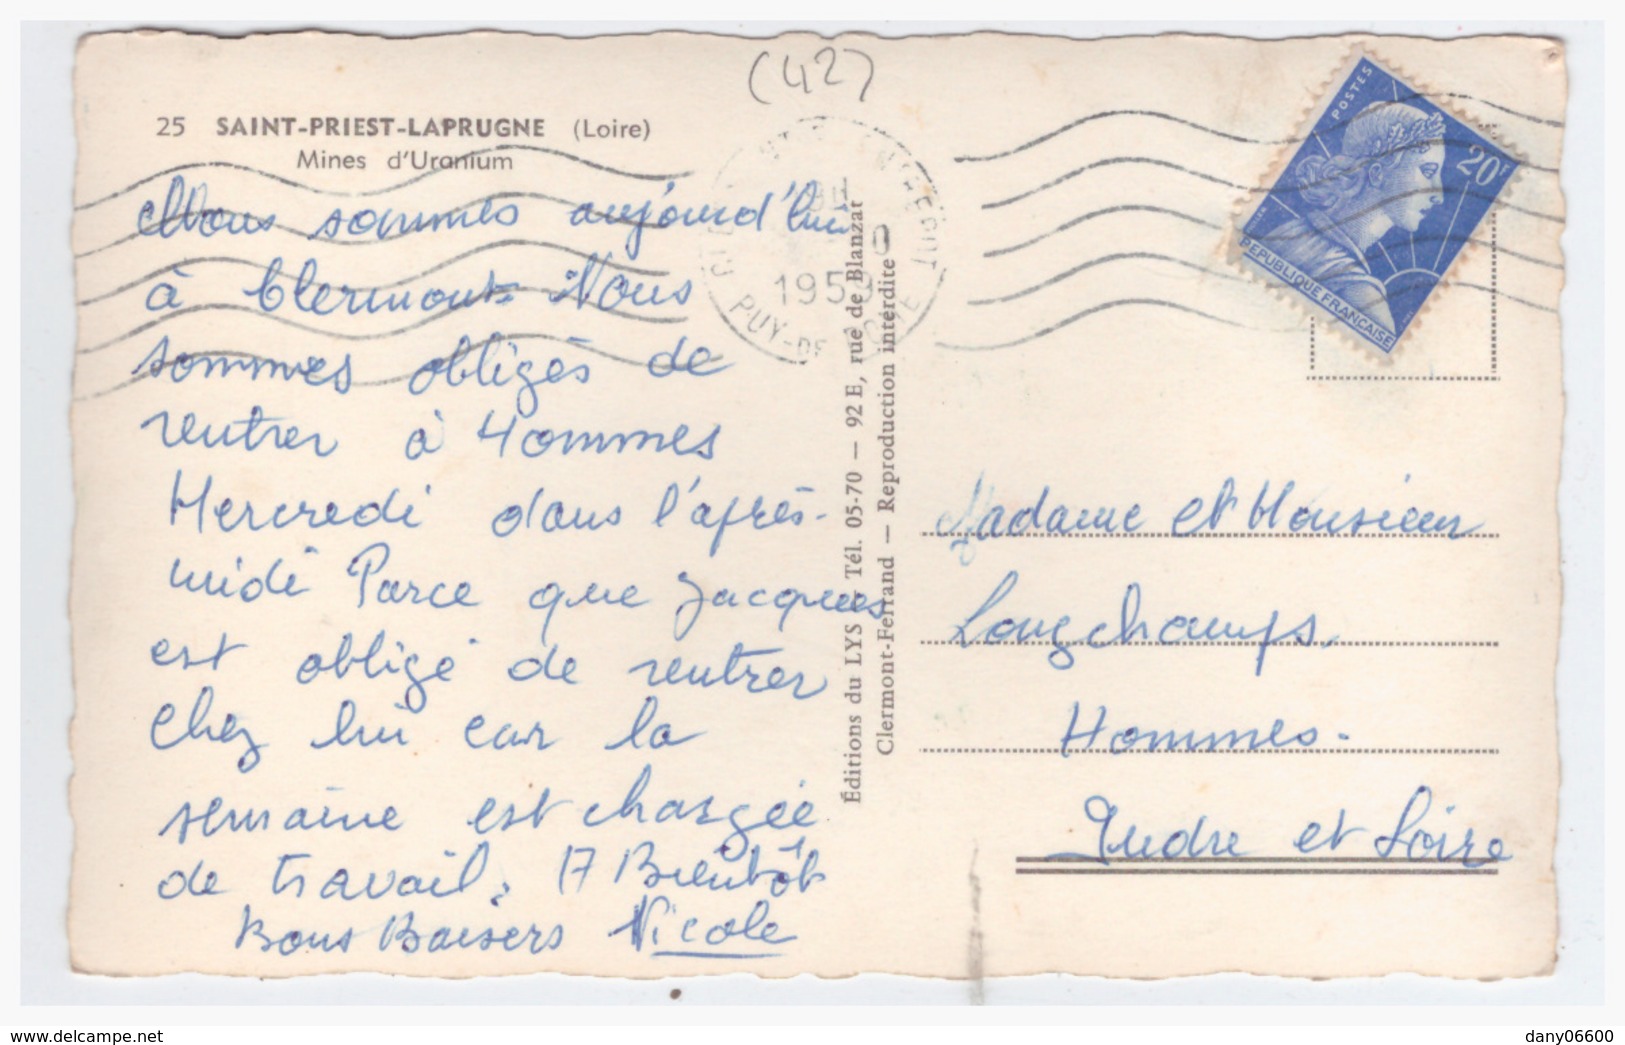 (42)
25 SAINT-PRIEST-LAPRUGNE (Loire)
Mines d'Uranium
Nous sommes aujourd'hui
à Clermont. Nous
sommes obligés de
rentrer à Hommes
Mercredi dans l'après-
midi Parce que Jacques
est obligé de rentrer
chez lui car la
semaine est chargée
de travail. A Bientôt
Bons Baisers Nicole
1959
PUY-DE DOME
Éditions du LYS Tél. 05-70 — 92 E, rue de Blanzat
Clermont-Ferrand — Reproduction interdite
POSTES
20F
REPUBLIQUE FRANCAISE
Madame et Monsieur
Longchamps.
Hommes.
Indre et Loire
www.delcampe.net
dany06600